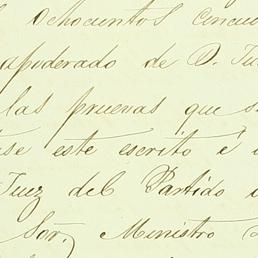 ochocientos cincue
apoderado de D. Ju
las pruevas que s
se este escrito é i
Juez del Partido
Sór. Ministro